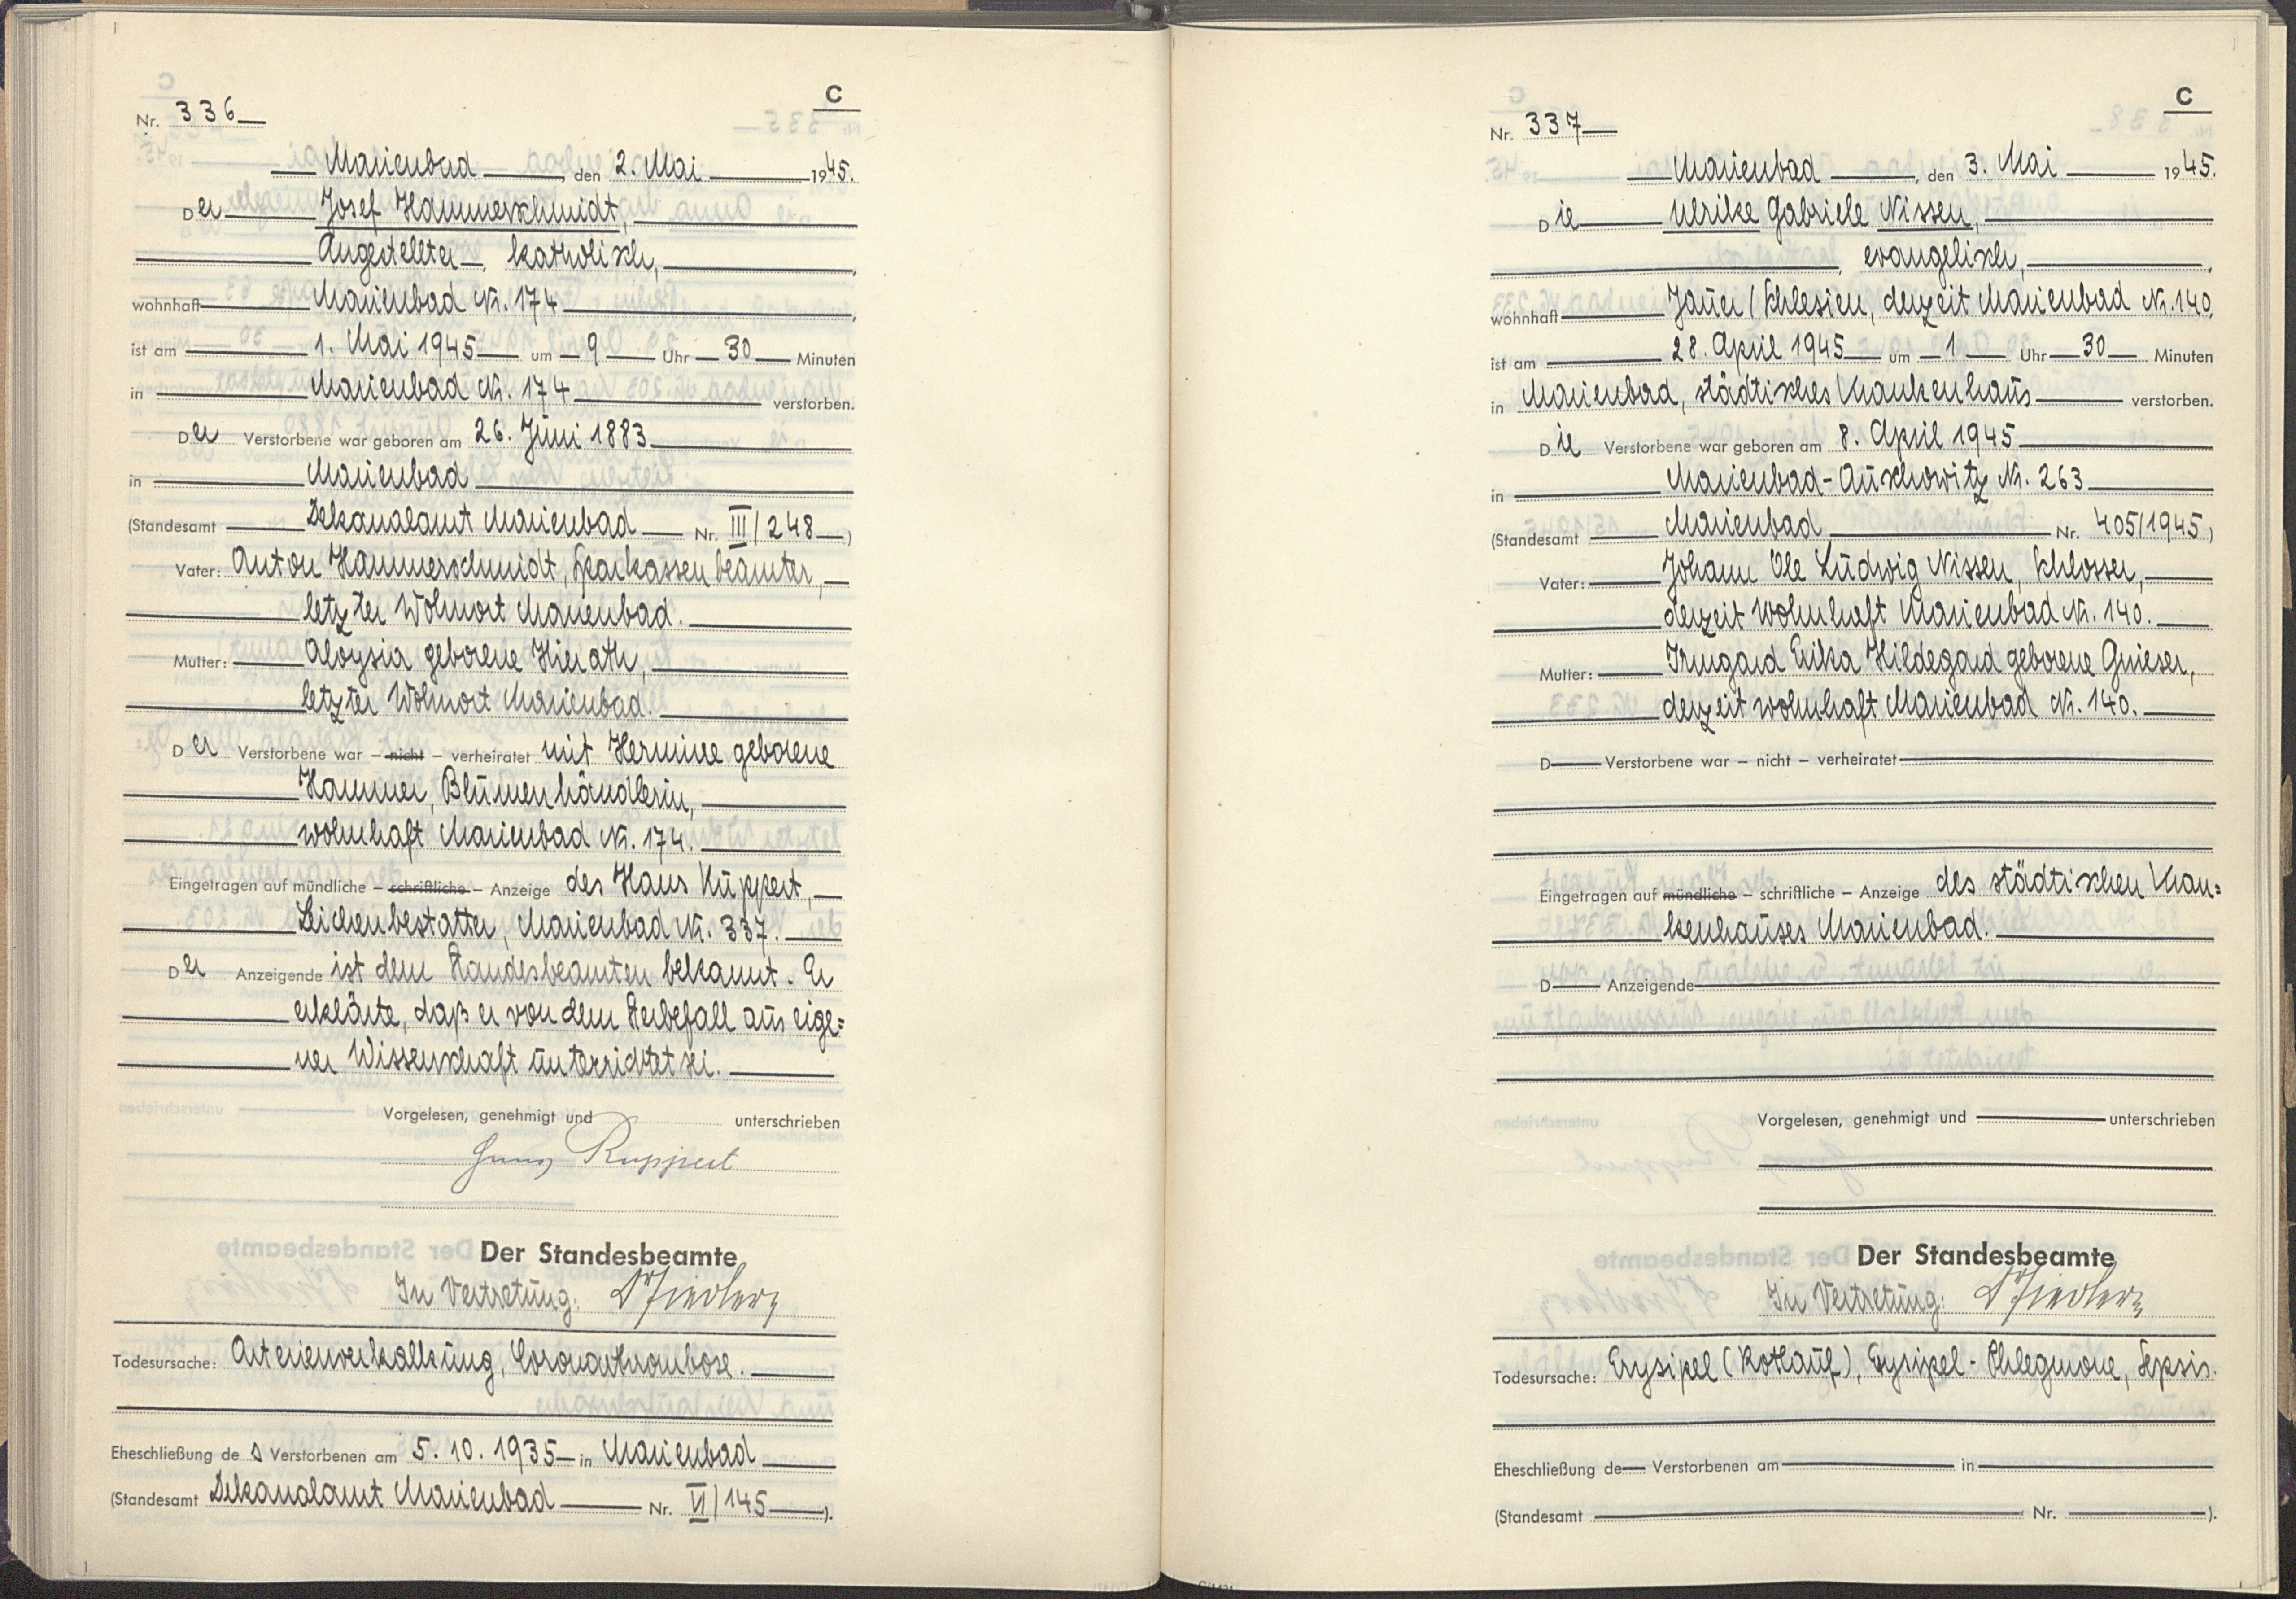 C
Nr. 336
Marienbad, den 2. Mai 1945.
Der Josef Hammerschmidt,
Angestellter, katholisch,
wohnhaft Marienbad Nr. 174,
ist am 1. Mai 1945 um 9 Uhr 30 Minuten
in Marienbad Nr. 174 verstorben.
Der Verstorbene war geboren am 26. Juni 1883
in Marienbad
(Standesamt Dekanalamt Marienbad Nr. III/248)
Vater: Anton Hammerschmidt, Sparkassenbeamter,
letzter Wohnort Marienbad.
Mutter: Aloysia geborene Hierath,
letzter Wohnort Marienbad.
Der Verstorbene war – nicht – verheiratet mit Hermine geborene
Hammer, Blumenhändlerin,
wohnhaft Marienbad Nr. 174.
Eingetragen auf mündliche – schriftliche – Anzeige des Hans Ruppert,
Leichenbestatter, Marienbad Nr. 337.
Der Anzeigende ist dem Standesbeamten bekannt. Er
erklärte, daß er von dem Sterbefall aus eige=
ner Wissenschaft unterrichtet sei.
Vorgelesen, genehmigt und unterschrieben
Hans Ruppert
Der Standesbeamte
In Vertretung:
Todesursache: Arterienverkalkung, Coronarthrombose.
Eheschließung des Verstorbenen am 5. 10. 1935 in Marienbad
(Standesamt Dekanalamt Marienbad Nr. VI/145).
C
Nr. 337
Marienbad, den 3. Mai 1945.
Die Ulrike Gabriele Nissen,
, evangelisch,
wohnhaft Jauer/Schlesien, derzeit Marienbad Nr. 140,
ist am 28. April 1945 um 1 Uhr 30 Minuten
in Marienbad, städtisches Krankenhaus verstorben.
Die Verstorbene war geboren am 8. April 1945
in Marienbad-Auschowitz Nr. 263
(Standesamt Marienbad Nr. 405/1945)
Vater: Johann Ole Ludwig Nissen, Schlosser,
derzeit wohnhaft Marienbad Nr. 140.
Mutter: Irmgard Erika Hildegard geborene Gnieser,
derzeit wohnhaft Marienbad Nr. 140.
D Verstorbene war – nicht – verheiratet
Eingetragen auf mündliche – schriftliche – Anzeige des städtischen Kran=
kenhauses Marienbad.
D Anzeigende
Vorgelesen, genehmigt und unterschrieben
Der Standesbeamte
In Vertretung:
Todesursache: Erysipel (Rotlauf), Erysipel-Phlegmone, Sepsis.
Eheschließung de Verstorbenen am in
(Standesamt Nr. ).